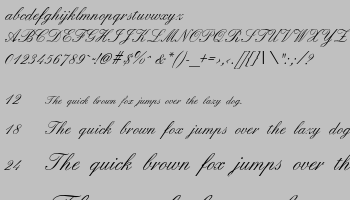 abcdefghijklmnopqrstuvwxyz
ABCDEFGHIJKLMNOPQRSTUVWXYZ
0123456789
12 The quick brown fox jumps over the lazy dog.
18 The quick brown fox jumps over the lazy dog
24 The quick brown fox jumps over th